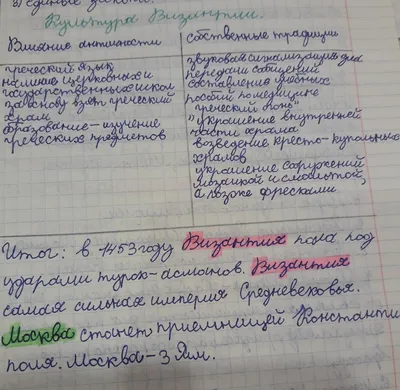 3) единые законы.
Культура Византии.
Влияние античности
собственные традиции
греческий язык
начало церковных и
государственных школ
за основу взят греческий
храм
образование – изучение
греческих предметов
звуковая сигнализация для
передачи сообщений
составление учебных
пособий по медицине
"греческий огонь"
украшение внутренней
части храма
возведение кресто-купольных
храмов
украшение сооружений
мозаикой и смальтой,
а позже фресками
Итог: в 1453 году Византия пала под
ударами турок-асманов. Византия
самая сильная империя Средневековья.
Москва станет приемницей Константи
поля. Москва – 3 Рим.